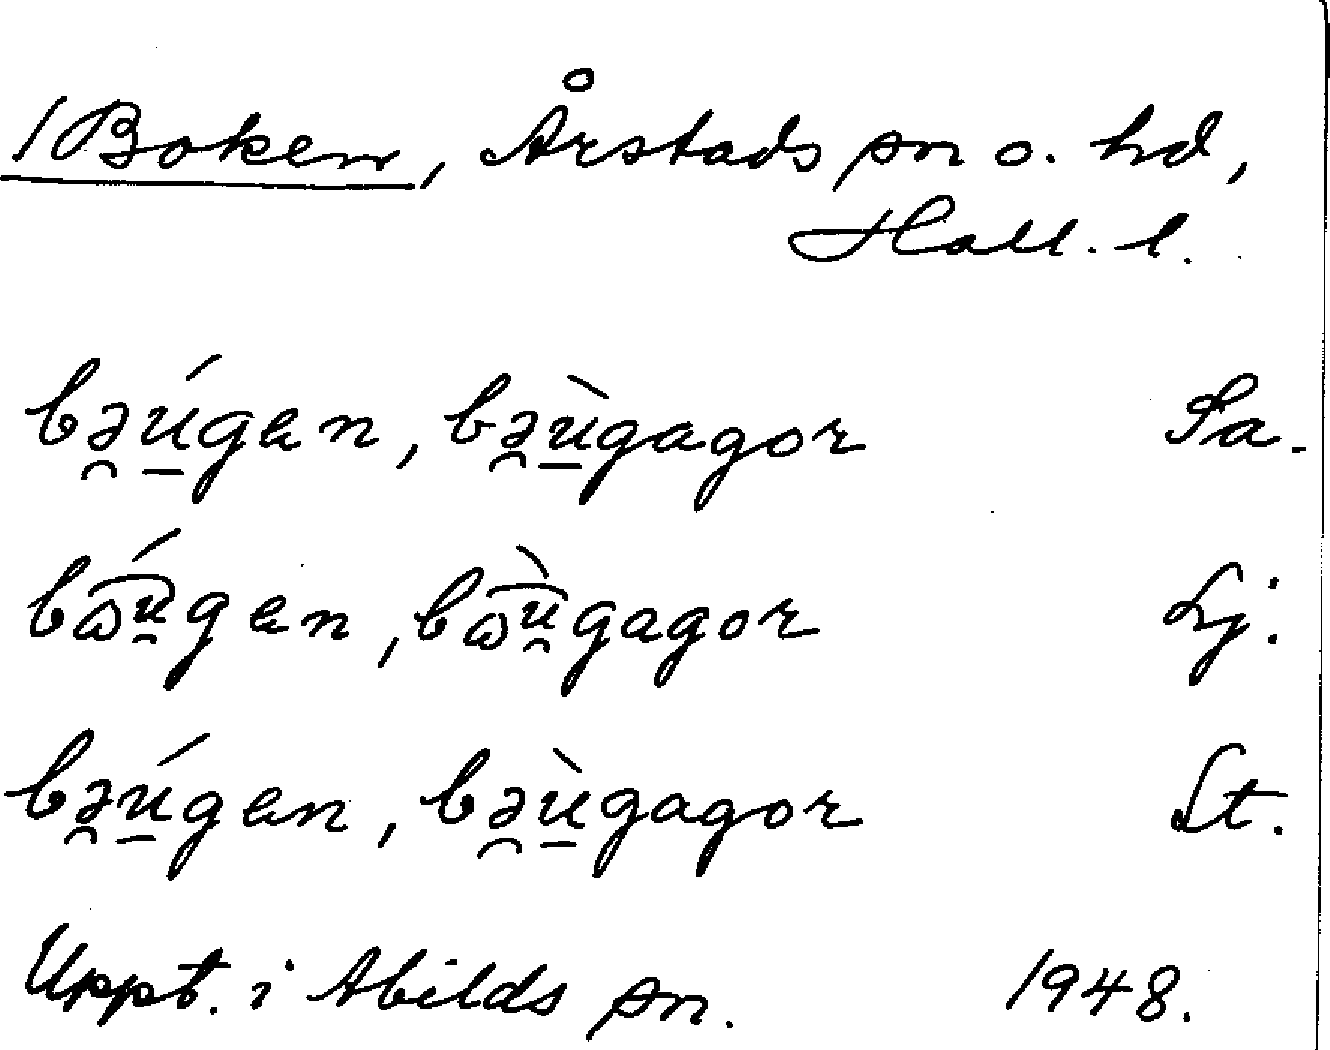 /Boken, Årstads sn o. hd,
Hall. l.
bə̯ú̱gen, bə̯ù̱gagor Sa.
bɷ͡ú̯gen, bɷ͡ù̯gagor Lj.
bə̯ú̱gen, bə̯ù̱gagor St.
Uppt. i Abilds sn. 1948.